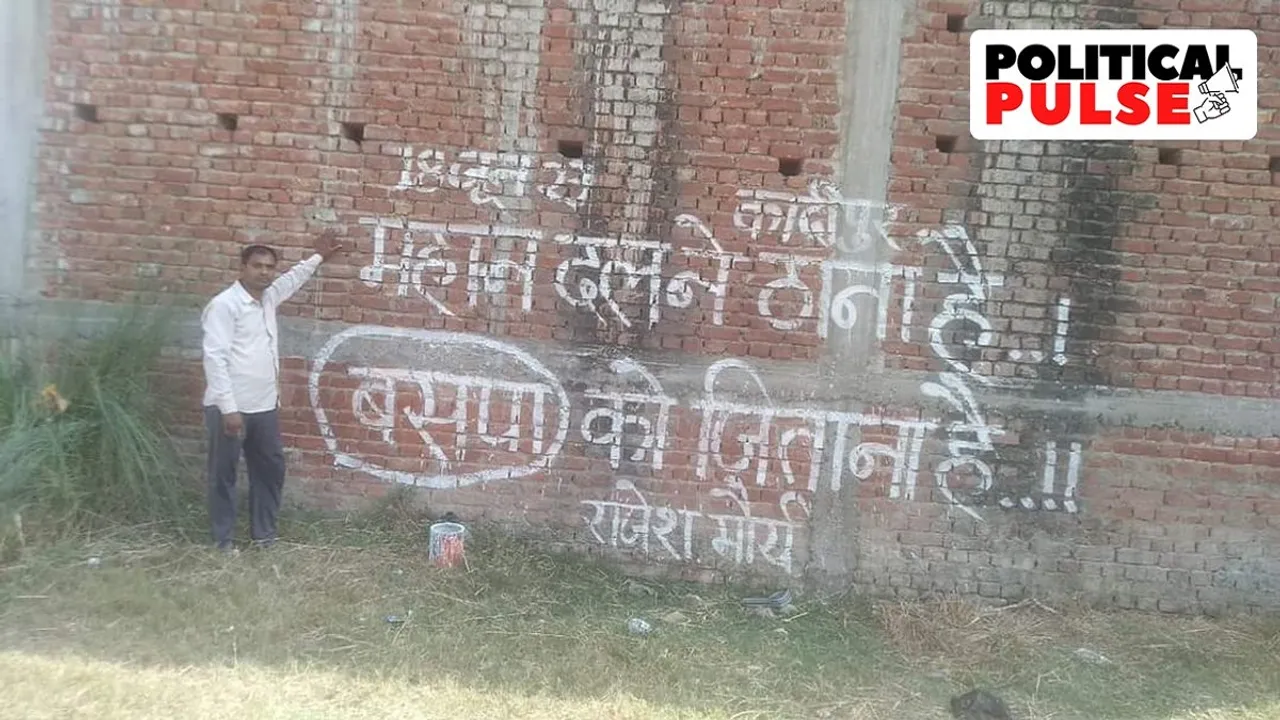 POLITICAL
PULSE
18 जून से
कादीपुर
महान दल ने ठाना है..!
बसपा को जिताना है...!!
राजेश मौर्य